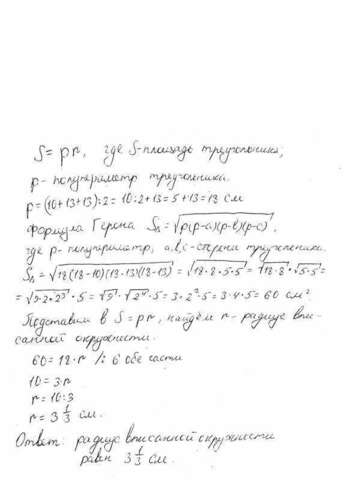 S = pr, где S-площадь треугольника;
p - полупериметр треугольника.
p = (10+13+13):2 = 10:2+13 = 5+13 = 18 см
Формула Герона S△ = √p(p-a)(p-b)(p-c),
где p - полупериметр, a,b,c - стороны треугольника.
S△ = √18(18-10)(18-13)(18-13) = √18·8·5·5 = √18·8·√5·5 =
= √9·2·2³·5 = √9·√2⁴·5 = 3·2²·5 = 3·4·5 = 60 см²
Подставим в S = pr, найдём r - радиус впи-
санной окружности.
60 = 18·r /: 6 обе части
10 = 3r
r = 10:3
r = 3 1/3 см.
Ответ: радиус вписанной окружности
равен 3 1/3 см.